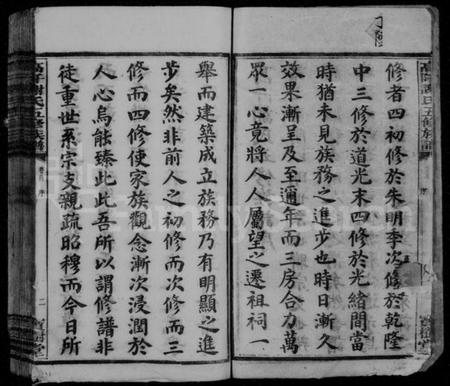 修者四初修於朱明季次修於乾隆
中三修於道光末四修於光緒間當
時猶未見族務之進步也時日漸久
效果漸呈及至通年而三房合力萬
眾一心竟將人人屬望之遷祖祠一
舉而建築成立族務乃有明顯之進
步矣然非前人之初修而次修而三
修而四修使家族觀念漸次浸潤於
人心烏能臻此此吾所以謂修譜非
徒重世系宗支親疏昭穆而今日所
謝氏五修族譜
序
二